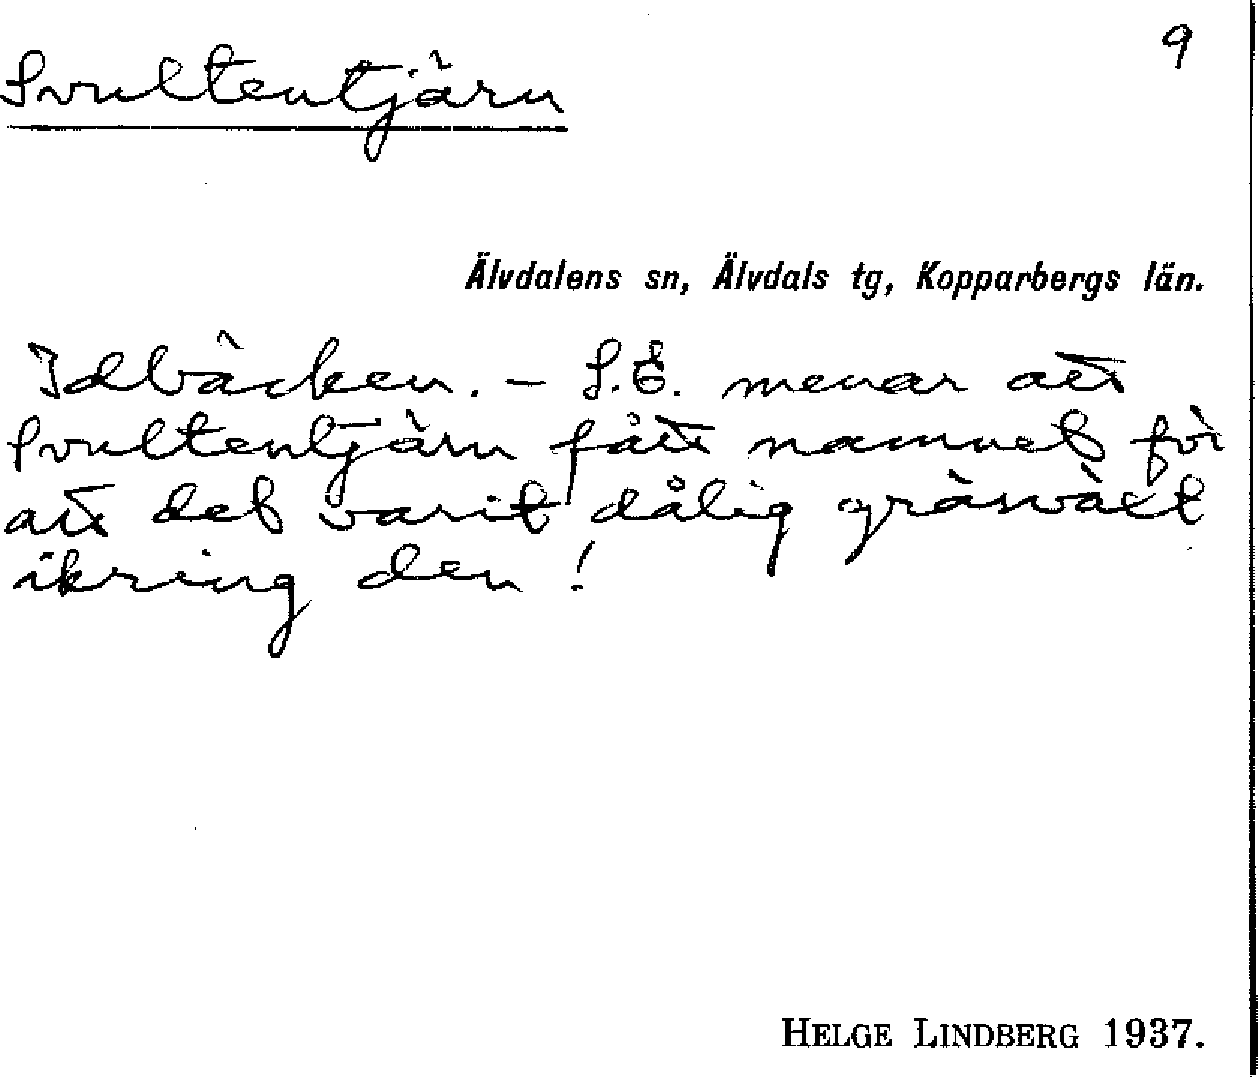 9
Svultentjärn
Älvdalens sn, Älvdals tg, Kopparbergs län.
Idbäcken. – S.E. menar att
Svultentjärn fått namnet för
att det varit dålig gräsväxt
ikring den!
HELGE LINDBERG 1937.